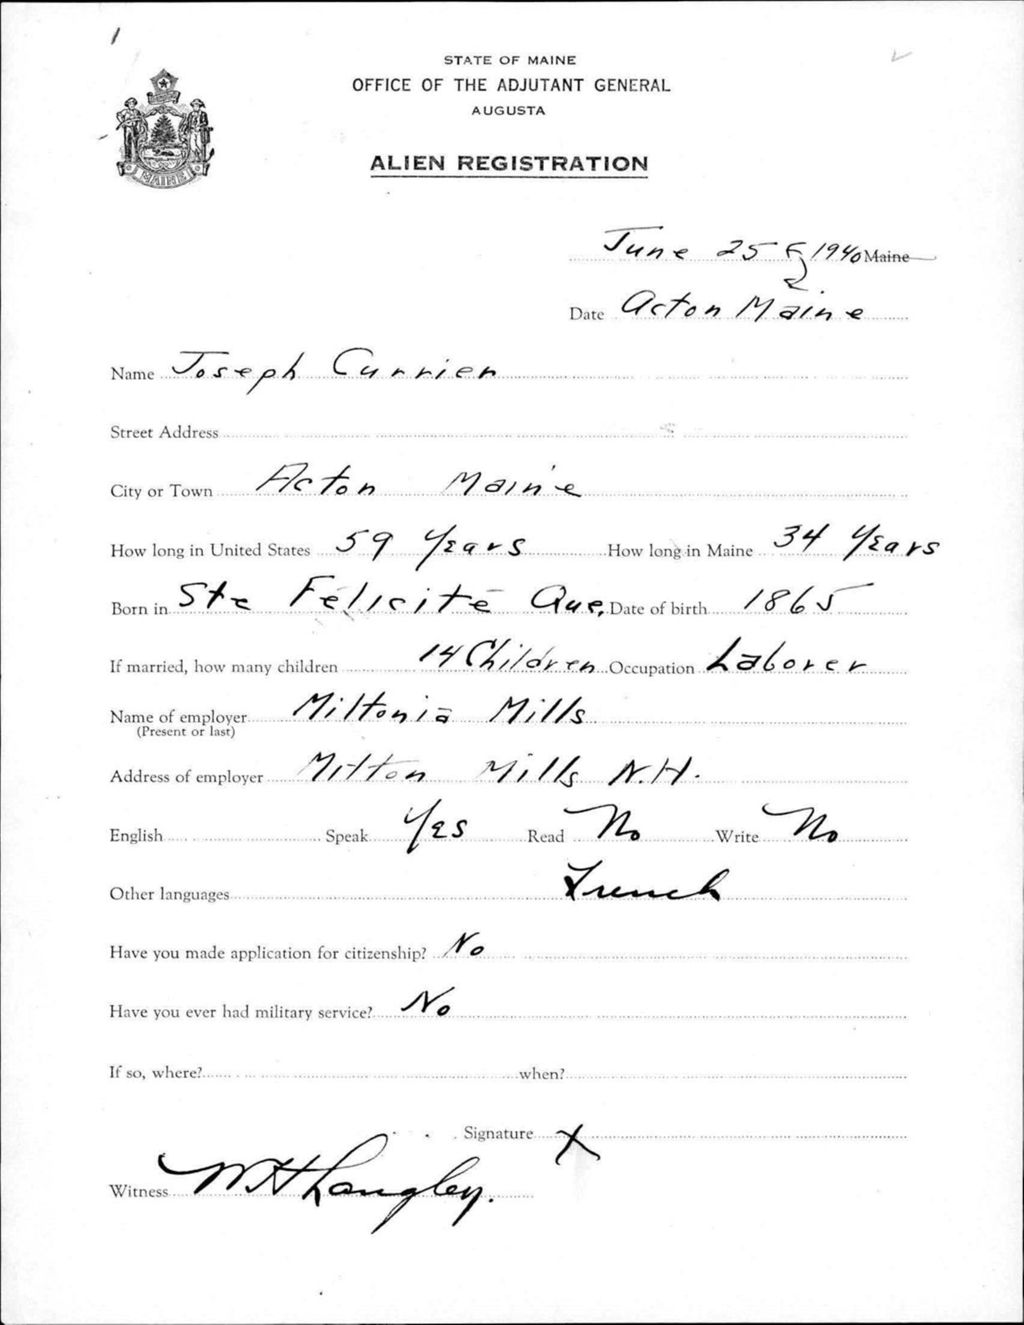 1
STATE OF MAINE
OFFICE OF THE ADJUTANT GENERAL
AUGUSTA
MAINE
ALIEN REGISTRATION
June 25 1940 Maine
Date Acton Maine
Name Joseph Currier
Street Address
City or Town Acton Maine
How long in United States 59 Years How long in Maine 34 Years
Born in Ste Félicité Que. Date of birth 1865
If married, how many children 14 Children Occupation Laborer
Name of employer Miltonia Mills
(Present or last)
Address of employer Milton Mills N.H.
English Speak Yes Read No Write No
Other languages French
Have you made application for citizenship? No
Have you ever had military service? No
If so, where? when?
Signature X
Witness W H Langley.